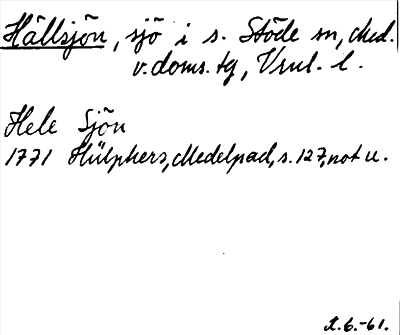 Hällsjön, sjö i s. Stöde sn, Med.
v. doms. tg, Vrnl. l.
Hele Sjön
1771 Hülphers, Medelpad, s. 127, not u.
1.6.-61.